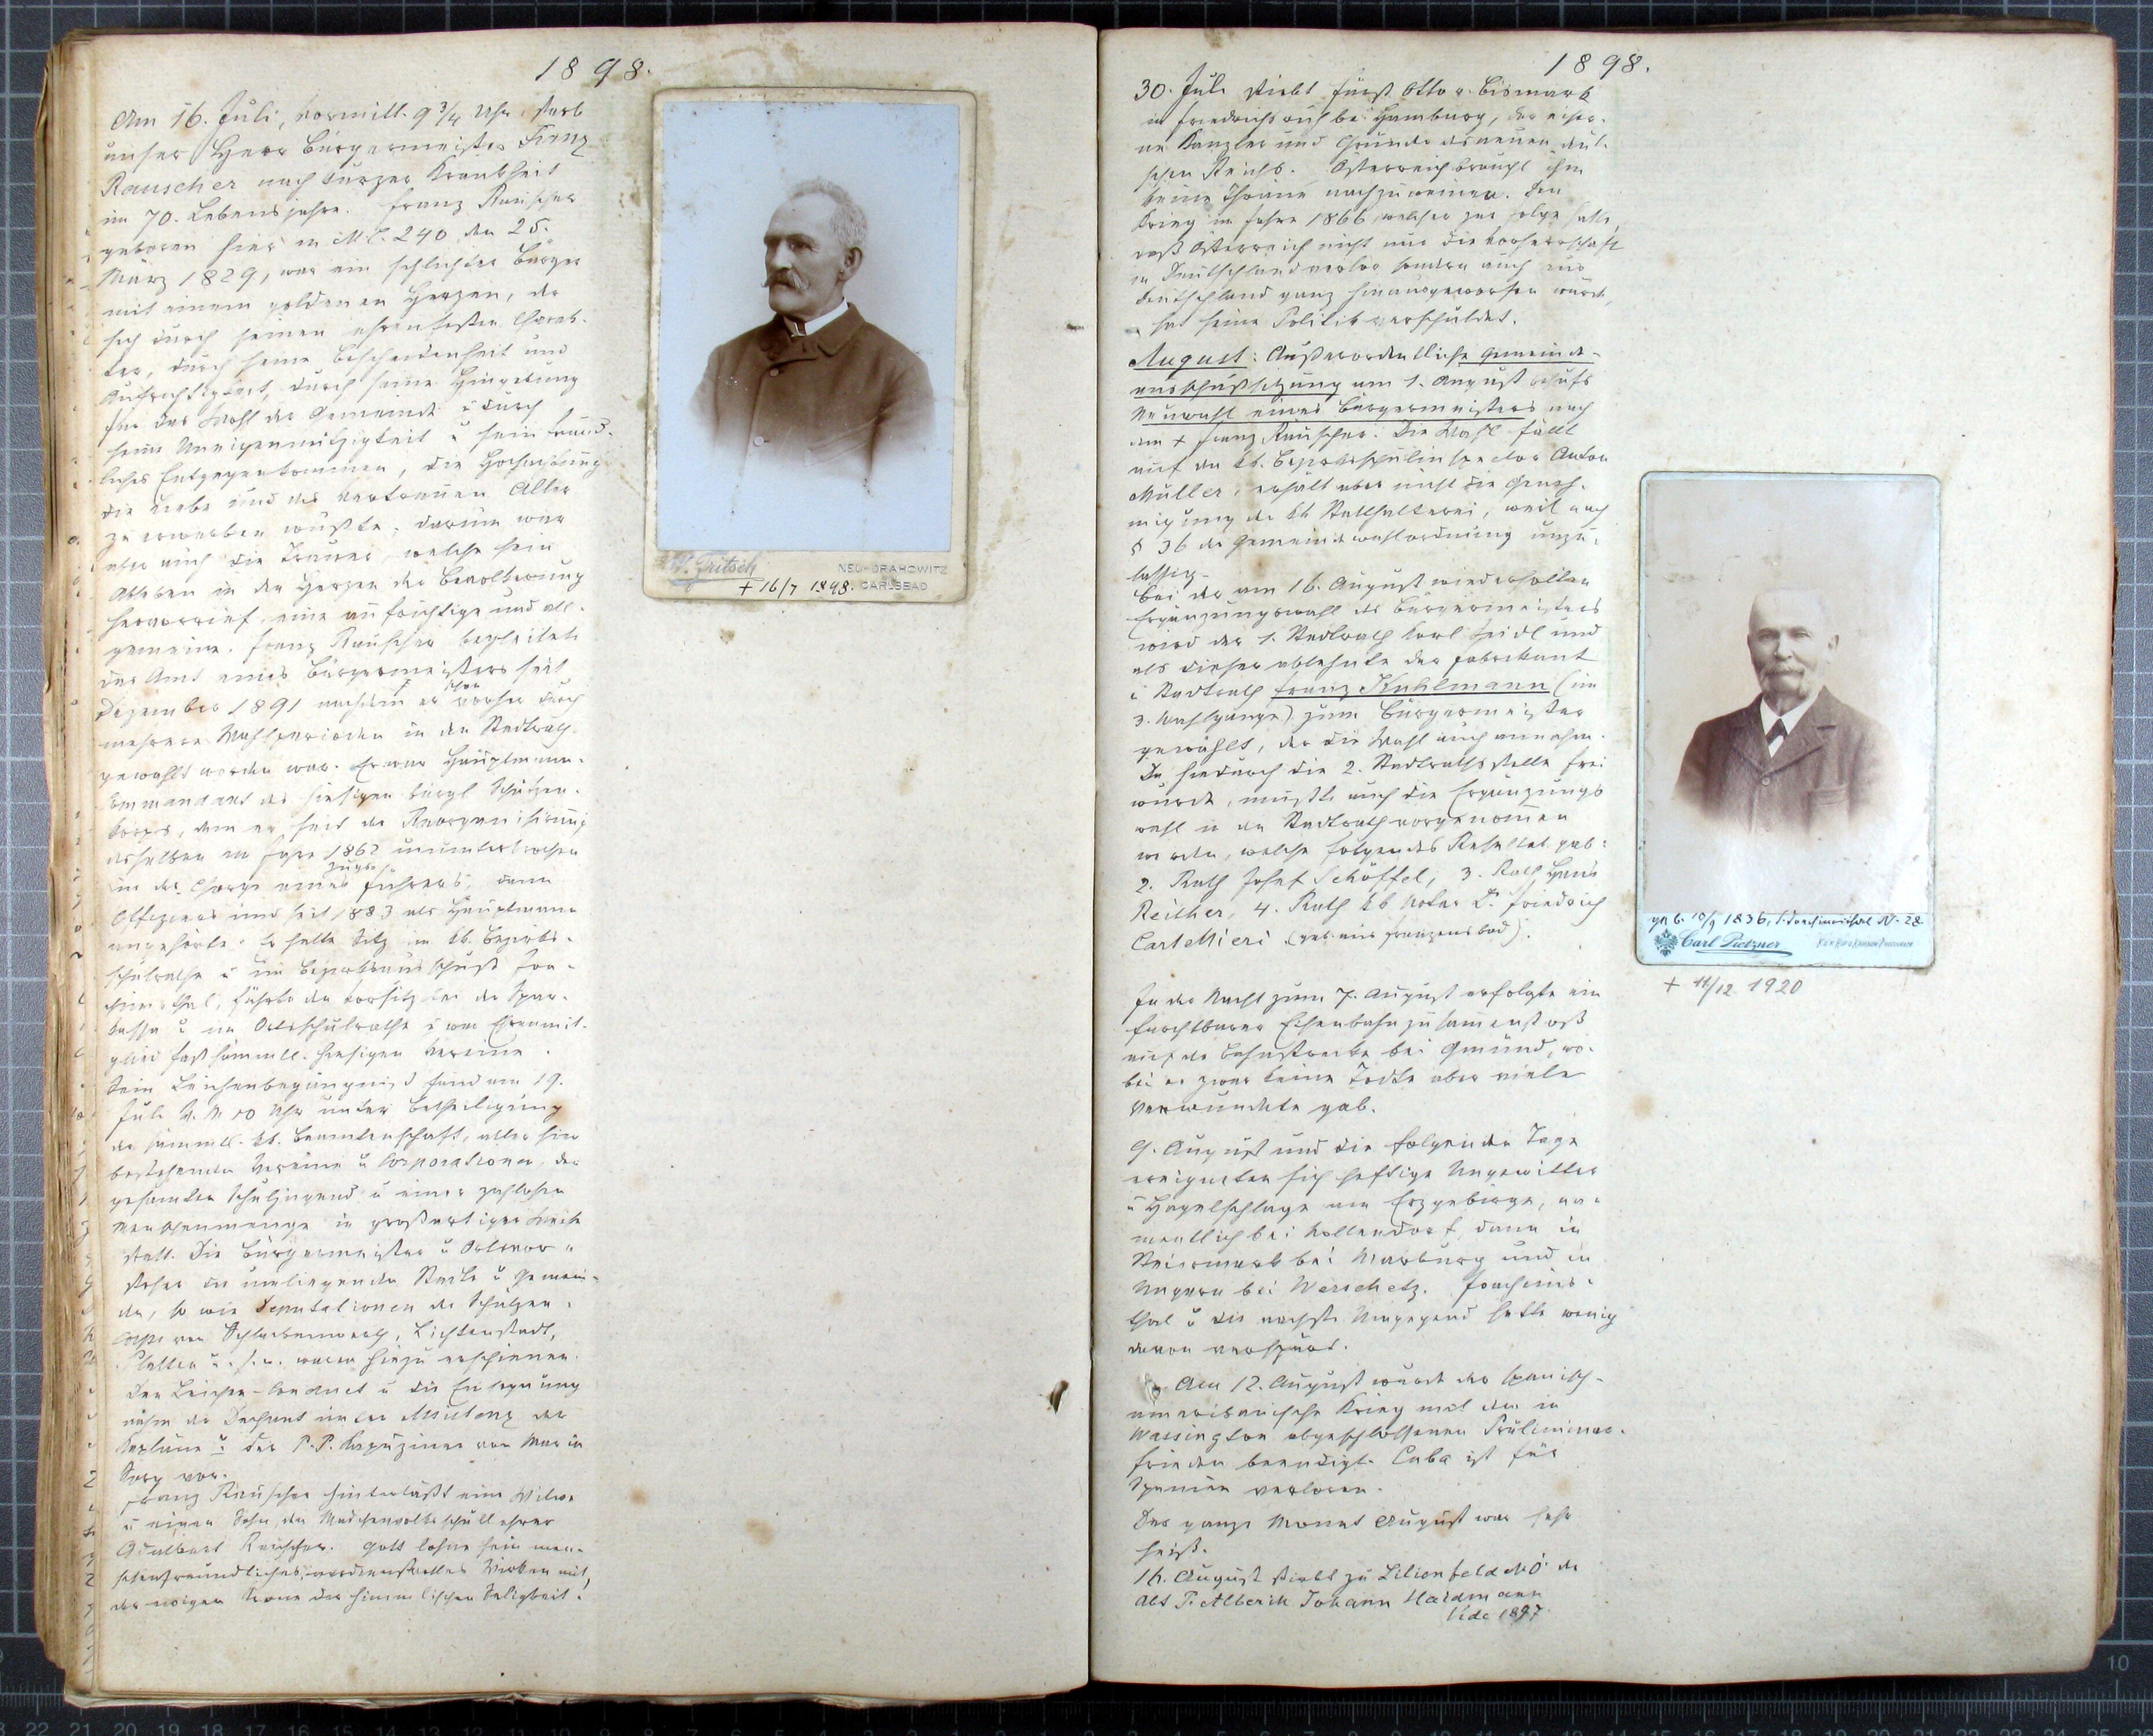 1898.
Am 16. Juli, vormitt. 9 3/4 Uhr, starb
unser Herr Bürgermeister Franz
Rauscher nach kurzer Krankheit
im 70. Lebensjahre. Franz Rauscher
geboren hier in No. C. 240 den 25.
März 1829, war ein schlichter Bürger
mit einem goldenen Herzen, der
sich durch seinen ehrenfesten Charak-
ter, durch seine Bescheidenheit und
Aufrichtigkeit, durch seine Hingebung
für das Wohl der Gemeinde u durch
seine Uneigennützigkeit u sein freund-
liches Entgegenkommen, die Hochachtung
die Liebe und das Vertrauen Aller
zu erwerben wußte; darum war
aber auch die Trauer, welche sein
Ableben in den Herzen der Bevölkerung
hervorrief, eine aufrichtige und all-
gemeine. Franz Rauscher begleitete
das Amt eines Bürgermeisters seit
Dezember 1891 nachdem er schon vorher durch
mehrere Wahlperioden in den Stadtrath
gewählt worden war. Er war Hauptmann-
Commandant des hiesigen bürgl. Schützen-
korps, dem er seit der Reorganisirung
desselben im Jahre 1862 ununterbrochen
in der Charge eines Zugsführers, dann
Offiziers und seit 1883 als Hauptmann
angehörte. Er hatte Sitz im kk. Bezirks-
schulrathe u im Bezirksausschuß Joa-
chimsthal, führte den Vorsitz bei der Spar-
kassa u im Ortsschulrathe u war Ehrenmit-
glied fast sämmtl. hiesigen Vereine.
Sein Leichenbegängniß fand am 19.
Juli N. M. 10 Uhr unter Betheiligung
der sämmtl. kk. Beamtenschaft, aller hier
bestehenden Vereine u Corporationen, der
gesamten Schuljugend u einer zahllosen
Menschenmenge in großartiger Weise
statt. Die Bürgermeister u Ortsvor-
steher der umliegenden Städte u Gemein-
den, so wie Deputationen der Schützen-
corps von Schlackenwerth, Lichtenstadt,
Platten u. s. w. waren hiezu erschienen.
Den Leichen-Conduct u die Einsegnung
nahm der Dechant unter Assistenz der
Kapläne u der P.P. Kapuziner von Maria
Sorg vor.
Franz Rauscher hinterläßt eine Witwe
u einen Sohn, den Mädchenvolksschullehrer
Adalbert Rauscher. Gott lohne sein men-
schenfreundliches, verdienstvolles Wirken mit
der ewigen Krone der himmlischen Seligkeit!
W. Fritsch
NEU-DRAHOWITZ
CARLSBAD
+ 16/7 1898.
1898.
30. Juli stirbt Fürst Otto v. Bismark
in Friedrichsruh bei Hamburg, der eiser-
ne Kanzler und Gründer des neuen deut-
schen Reichs. Österreich braucht ihm
keine Thräne nachzuweinen. Den
Krieg im Jahre 1866, welcher zur Folge hatte,
daß Österreich nicht nur die Vorherrschaft
in Deutschland verlor sondern auch aus
Deutschland ganz hinausgeworfen wurde,
hat seine Politik verschuldet.
August: Außerordentliche Gemeinde-
ausschußsitzung am 1. August behufs
Neuwahl eines Bürgermeisters nach
dem + Franz Rauscher. Die Wahl fällt
auf den kk. Bezirksschulinspector Anton
Müller, erhält aber nicht die Geneh-
migung der kk Statthalterei, weil nach
§ 36 der Gemeindewahlordnung unzu-
lässig.
Bei der am 16. August wiederholten
Ergänzungswahl des Bürgermeisters
wird der 1. Stadtrath Karl Seidl und
als dieser ablehnte der Fabrikant
u Stadtrath Franz Kuhlmann (im
3. Wahlgange) zum Bürgermeister
gewählt, der die Wahl auch annahm.
Da hiedurch die 2. Stadtrathsstelle frei
wurde, mußte auch die Ergänzungs
wahl in den Stadtrath vorgenommen
werden, welche folgendes Resultat gab:
2. Rath Josef Schöffel, 3. Rath Hans
Reither, 4. Rath kk Notar Dr. Friedrich
Cartellieri (geb. aus Franzensbad).
In der Nacht zum 7. August erfolgte ein
furchtbarer Eisenbahnzusammenstoß
auf der Bahnstrecke bei Gmünd, wo-
bei es zwar keine Todte aber viele
Verwundete gab.
9. August und die folgenden Tage
ereigneten sich heftige Ungewitter
u Hagelschläge am Erzgebirge, na-
mentlich bei Nollendorf, dann in
Steiermark bei Marburg und in
Ungarn bei Werschetz. Joachims-
thal u die nächste Umgegend hatte wenig
davon verspürt.
Am 12. August wurde der spanisch-
amerikanische Krieg mit den in
Wassington abgeschlossenen Präliminar-
frieden beendigt. Cuba ist für
Spanien verloren.
Der ganze Monat August war sehr
heiß.
16. August stirbt zu Lilienfeld NÖ. der
Abt P. Alberik Johann Haidmann
Vide 1897
geb. 10/9 1836, S. Joachimsthal N. 28
Carl Pietzner
+ 11/12 1920